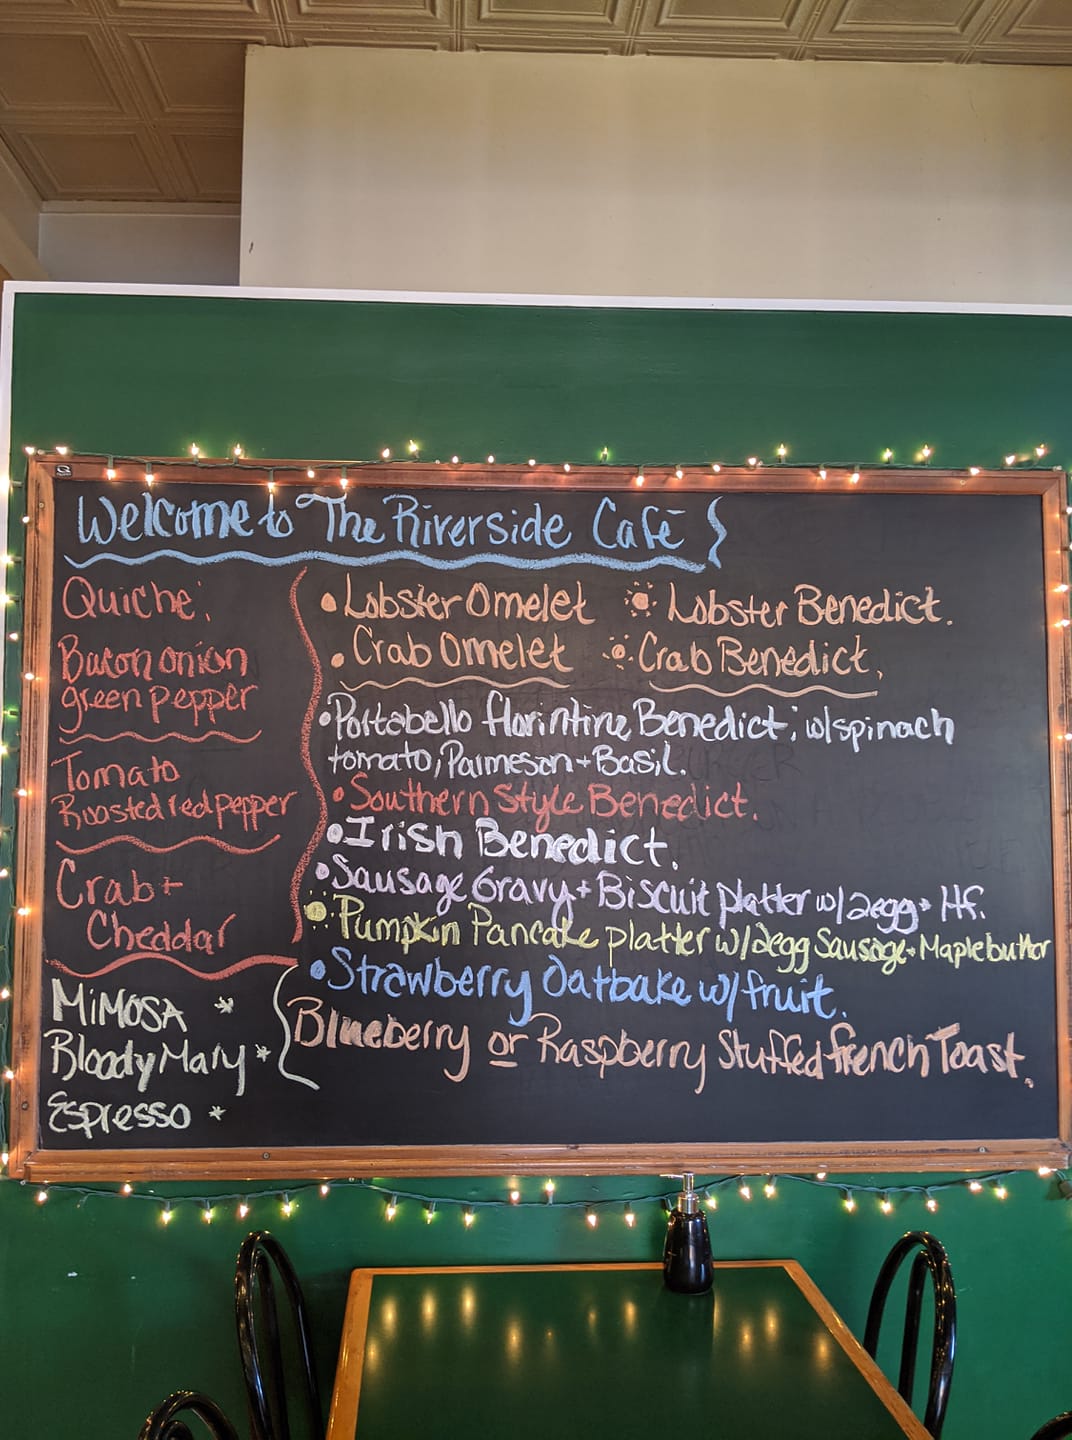 Welcome to The Riverside Café
Quiche:
Bacon onion
green pepper
Tomato
Roasted red pepper
Crab +
Cheddar
MiMOSA *
Bloody Mary *
Espresso *
• Lobster Omelet • Lobster Benedict.
• Crab Omelet • Crab Benedict.
• Portabello florintine Benedict; w/spinach
tomato, Parmeson + Basil.
• Southern Style Benedict.
• Irish Benedict.
• Sausage Gravy + Biscuit platter w/ 2egg + Hf.
• Pumpkin Pancake platter w/2egg Sausage + Maple butter
• Strawberry Oatbake w/ fruit.
Blueberry or Raspberry Stuffed french Toast.